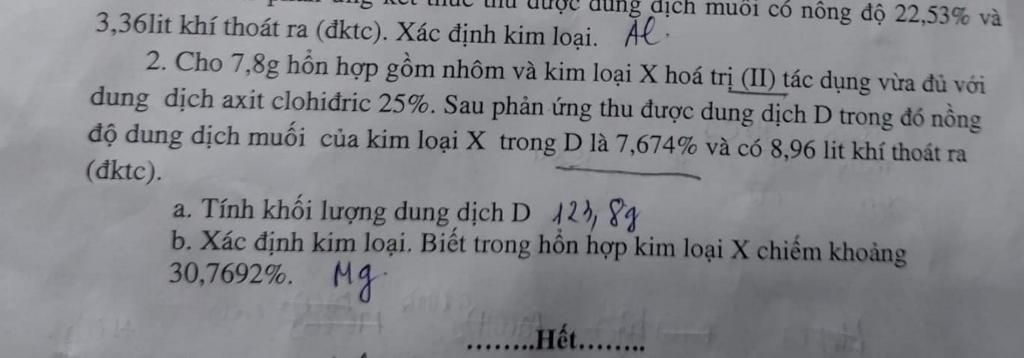 phản ứng kết thúc thu được dung dịch muối có nồng độ 22,53% và
3,36lit khí thoát ra (đktc). Xác định kim loại. Al.
2. Cho 7,8g hỗn hợp gồm nhôm và kim loại X hoá trị (II) tác dụng vừa đủ với
dung dịch axit clohiđric 25%. Sau phản ứng thu được dung dịch D trong đó nồng
độ dung dịch muối của kim loại X trong D là 7,674% và có 8,96 lit khí thoát ra
(đktc).
a. Tính khối lượng dung dịch D 123,8g
b. Xác định kim loại. Biết trong hỗn hợp kim loại X chiếm khoảng
30,7692%. Mg.
........Hết........